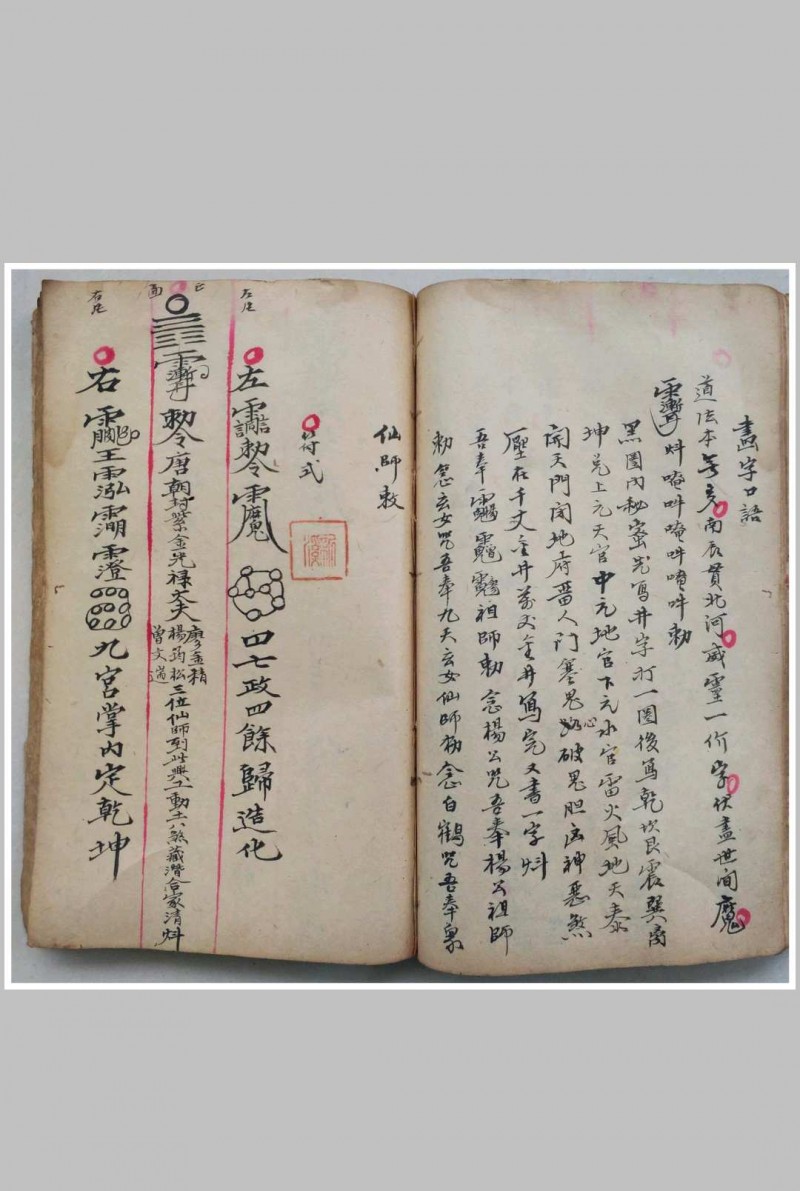 畫字口語
道法本無多南辰貫北河威靈一介字伏盡世間魔
𪹳唵吽唵吽唵吽勅
黑圈內秘密先寫井字打一圈後寫乾坎艮震巽离
坤兑上元天官中元地官下元水官雷火風地天泰
開天門閉地府留人門塞鬼路破鬼心破鬼胆凶神惡煞
壓在千丈金井萬丈金井寫完又書一字
吾奉祖師勅念楊公咒吾奉楊公祖師
勅念玄女咒吾奉九天玄女仙師勅念白鶴咒吾奉
仙師敕
符式
左片
左勅令七政四餘歸造化
正面
勅令唐朝封紫金光祿大夫
廖金精
楊筠松
曾文遄
三位仙師到此興工動土八煞藏潛合家清
右片
右
九宮掌內定乾坤